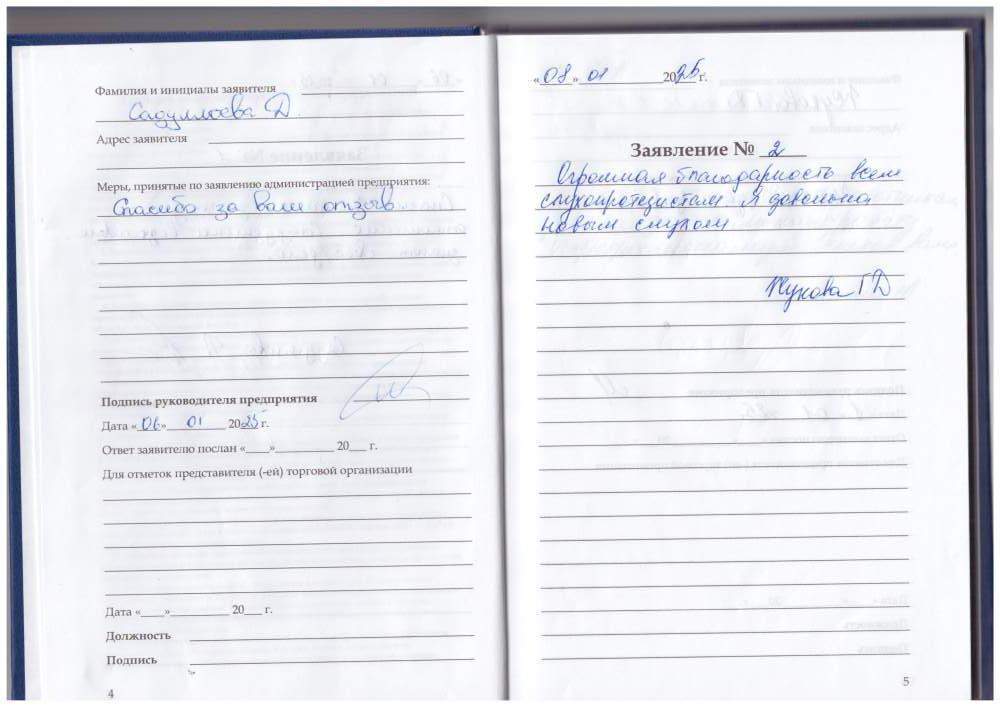 Фамилия и инициалы заявителя
Садуллоева Д.
Адрес заявителя
Меры, принятые по заявлению администрацией предприятия:
Спасибо за ваш отзыв
Подпись руководителя предприятия
Дата «06» 01 2025 г.
Ответ заявителю послан «____»__________ 20___ г.
Для отметок представителя (-ей) торговой организации
Дата «____»__________ 20___ г.
Должность
Подпись
4
«08» 01 2025 г.
Заявление № 2
Огромная благодарность всем
слухопротезистам Я довольна
новым слухом
Жукова Г Д
5